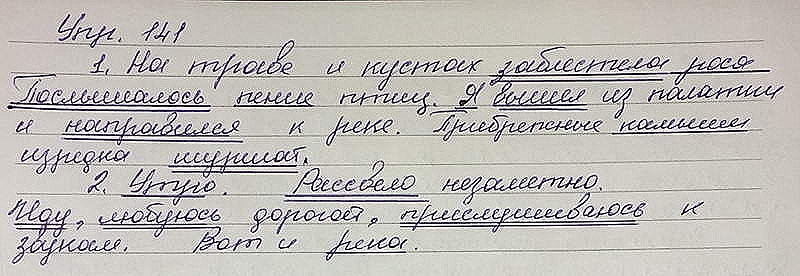 Упр. 141
1. На траве и кустах заблестела роса
Послышалось пение птиц. Я вышел из палатки
и направился к реке. Прибрежные камыши
изредка шуршат.
2. Утро. Рассвело незаметно.
Иду, любуюсь дорогой, прислушиваюсь к
звукам. Вот и река.